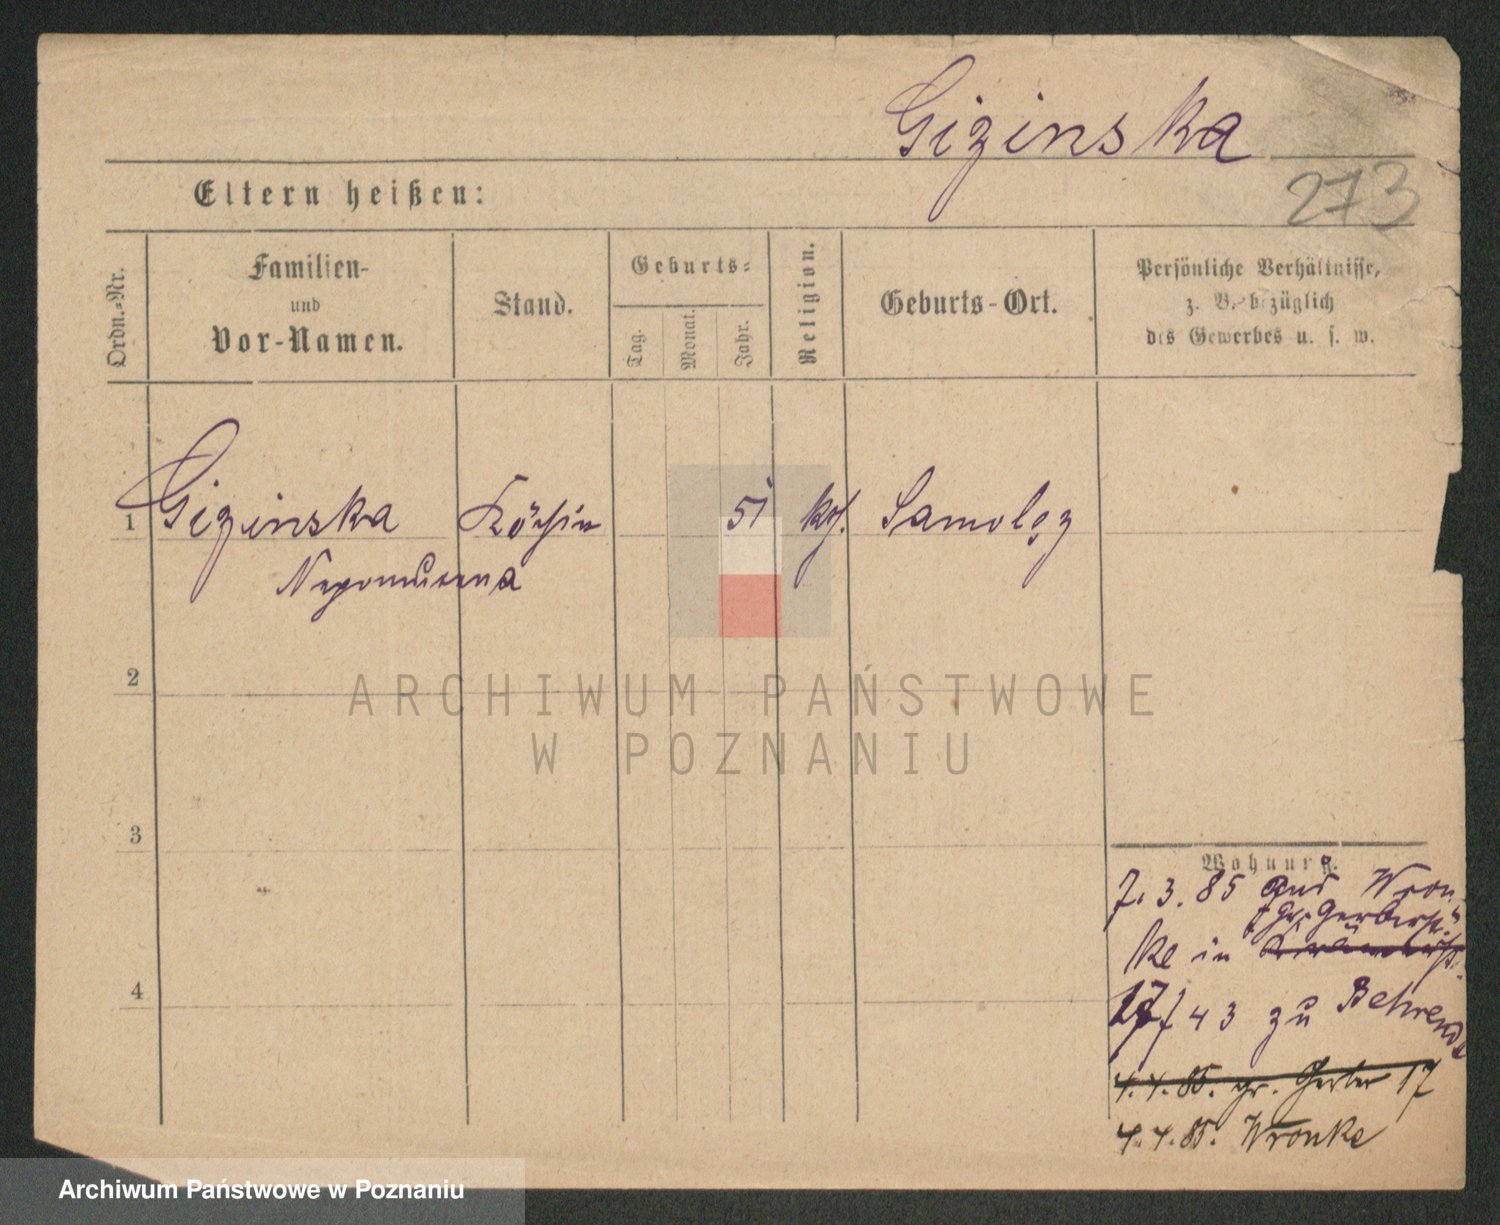 Gizinska
273
Eltern heißen:
Ordn.-Nr.
Familien-
und
Vor-Namen.
Stand.
Geburts-
Tag.
Monat.
Jahr.
Religion.
Geburts-Ort.
Persönliche Verhältnisse,
z. B. bezüglich
des Gewerbes u. s. w.
1 Gizinska Köchin 51 kath. Samolez
Nepomucena
2
3
4
Wohnung.
7. 3. 85 aus Wron-
gr. Gerberst.
ke in
17 43 zu Behrend
4. 4. 85. gr. Gerber 17
4. 4. 85. Wronke
ARCHIWUM PAŃSTWOWE
W POZNANIU
Archiwum Państwowe w Poznaniu